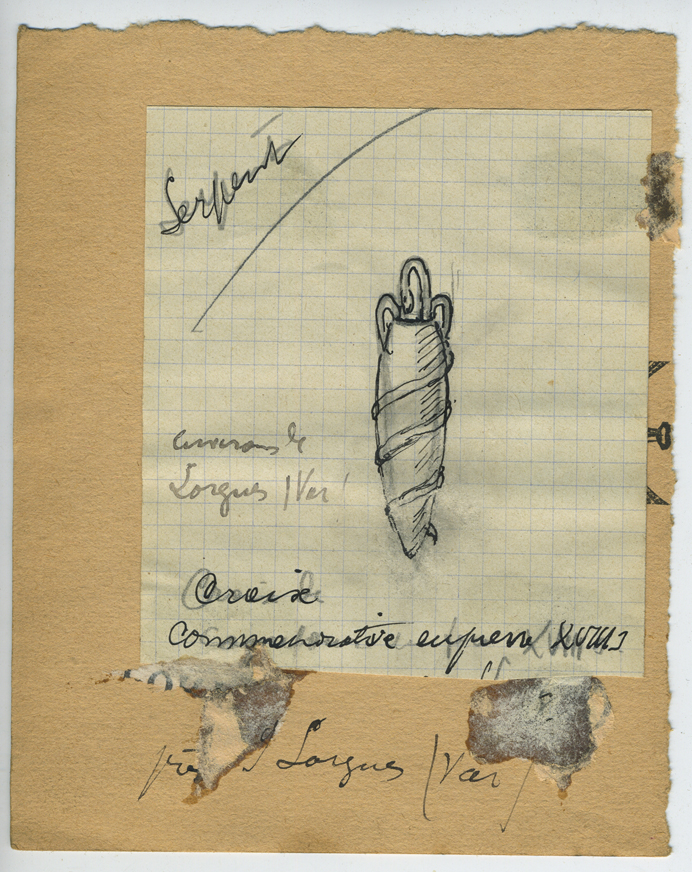 Serpent
environs de
Lorgues (Var)
Croix
commemorative en pierre XVIII
près Lorgues (Var)